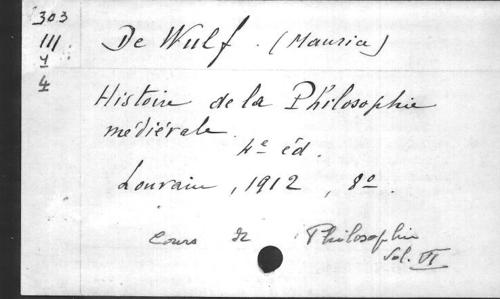 303
III
Y
4
De Wulf. (Maurice)
Histoire de la Philosophie
médiévale.
4e éd.
Louvain, 1912, 8o.
Cours de Philosophie
Vol. VI